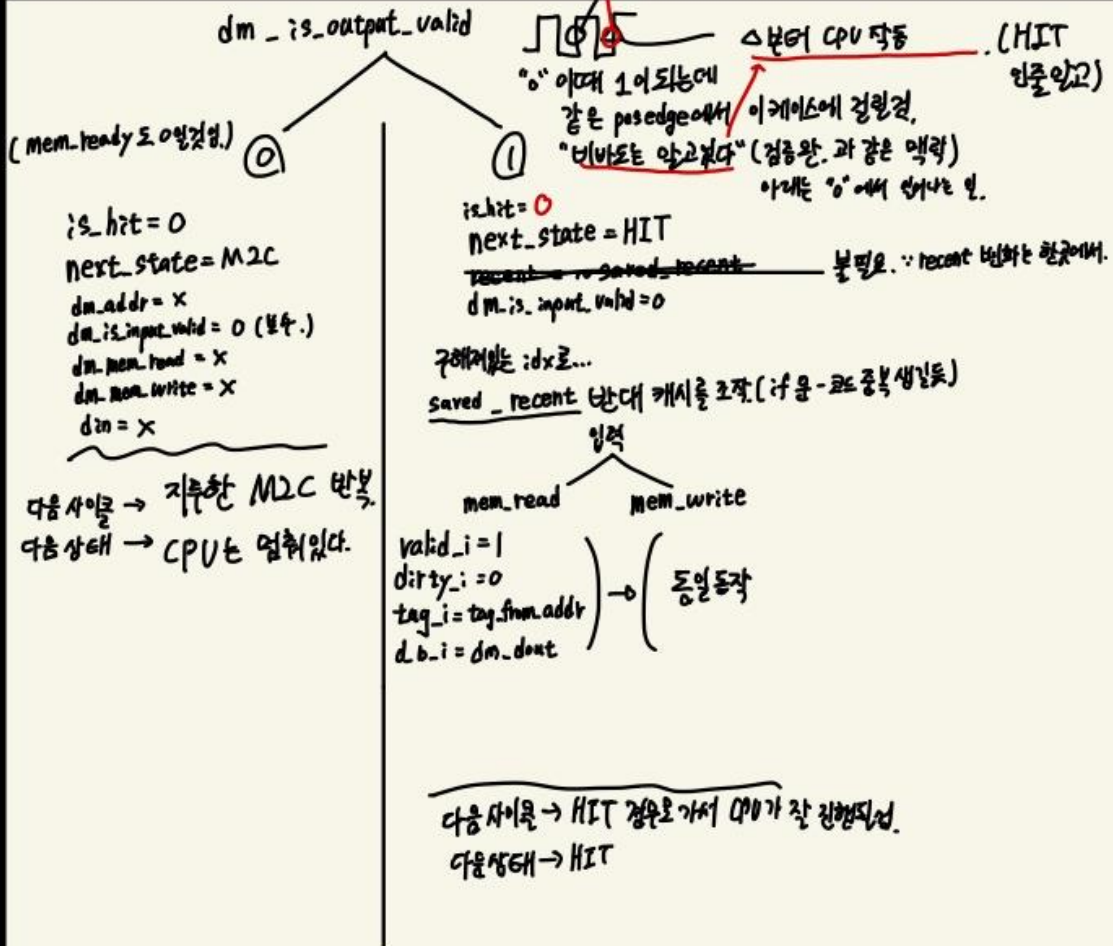 dm_is_output_valid
△부터 CPU 작동. (HIT
인줄 알고)
"o" 이때 1이 되는데
같은 posedge에서 이 케이스에 걸릴걸.
"비바도는 알고있다" (검증완. 과 같은 맥락)
아래는 "o"에서 일어나는 일.
(mem_ready도 0일것임.)
0
1
is_hit = 0
next_state = M2C
dm_addr = x
dm_is_input_valid = 0 (보수.)
dm_mem_read = x
dm_mem_write = x
din = x
다음 사이클 → 지루한 M2C 반복.
다음 상태 → CPU는 멈춰있다.
is_hit = 0
next_state = HIT
불필요. ∵ recent 변화는 한곳에서.
dm_is_input_valid = 0
구해져있는 idx로...
saved_recent 반대 캐시를 조작. (if문 - 코드 중복 생길듯)
입력
mem_read
mem_write
valid_i = 1
dirty_i = 0
tag_i = tag_from_addr
db_i = dm_dout
동일 동작
다음 사이클 → HIT 경우로 가서 CPU가 잘 진행될 것.
다음 상태 → HIT